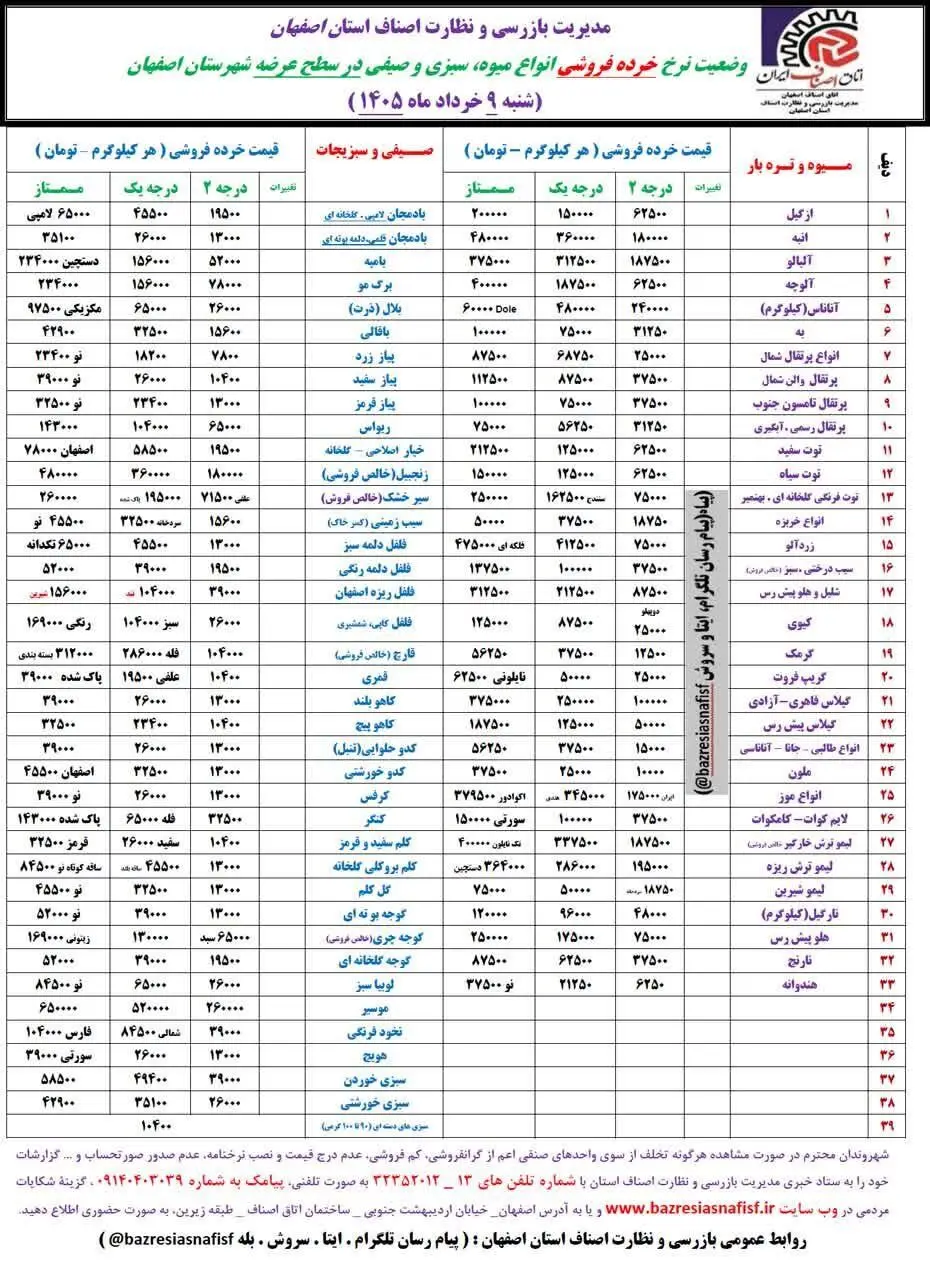 مدیریت بازرسی و نظارت اصناف استان اصفهان
وضعیت نرخ خرده فروشی انواع میوه، سبزی و صیفی در سطح عرضه شهرستان اصفهان
(شنبه ۹ خرداد ماه ۱۴۰۵)
اتاق اصناف ایران
اتاق اصناف اصفهان
مدیریت بازرسی و نظارت اصناف
استان اصفهان
ردیف میوه و تره بار قیمت خرده فروشی ( هر کیلوگرم – تومان ) صیفی و سبزیجات قیمت خرده فروشی ( هر کیلوگرم – تومان )
تغییرات درجه ۲ درجه یک ممتاز تغییرات درجه ۲ درجه یک ممتاز
۱ ازگیل ۶۲۵۰۰ ۱۵۰۰۰۰ ۲۰۰۰۰۰ بادمجان لامپی . گلخانه ای ۱۹۵۰۰ ۴۵۵۰۰ ۶۵۰۰۰ لامپی
۲ انبه ۱۸۰۰۰۰ ۳۶۰۰۰۰ ۴۸۰۰۰۰ بادمجان قلمی،دلمه بوته ای ۱۳۰۰۰ ۲۶۰۰۰ ۳۵۱۰۰
۳ آلبالو ۱۸۷۵۰۰ ۳۱۲۵۰۰ ۳۷۵۰۰۰ بامیه ۵۲۰۰۰ ۱۵۶۰۰۰ دستچین ۲۳۴۰۰۰
۴ آلوچه ۶۲۵۰۰ ۱۸۷۵۰۰ ۴۰۰۰۰۰ برگ مو ۷۸۰۰۰ ۱۵۶۰۰۰ ۲۳۴۰۰۰
۵ آناناس(کیلوگرم) ۲۴۰۰۰۰ ۴۸۰۰۰۰ ۶۰۰۰۰ Dole بلال (ذرت) ۲۶۰۰۰ ۶۵۰۰۰ مکزیکی ۹۷۵۰۰
۶ به ۳۱۲۵۰ ۷۵۰۰۰ ۱۰۰۰۰۰ باقالی ۱۵۶۰۰ ۳۲۵۰۰ ۴۲۹۰۰
۷ انواع پرتقال شمال ۲۵۰۰۰ ۶۸۷۵۰ ۸۷۵۰۰ پیاز زرد ۷۸۰۰ ۱۸۲۰۰ نو ۲۳۴۰۰
۸ پرتقال والن شمال ۳۷۵۰۰ ۸۷۵۰۰ ۱۱۲۵۰۰ پیاز سفید ۱۰۴۰۰ ۲۶۰۰۰ نو ۳۹۰۰۰
۹ پرتقال تامسون جنوب ۳۷۵۰۰ ۷۵۰۰۰ ۱۰۰۰۰۰ پیاز قرمز ۱۳۰۰۰ ۲۳۴۰۰ نو ۳۲۵۰۰
۱۰ پرتقال رسمی ، آبگیری ۳۱۲۵۰ ۵۶۲۵۰ ۷۵۰۰۰ ریواس ۶۵۰۰۰ ۱۰۴۰۰۰ ۱۴۳۰۰۰
۱۱ توت سفید ۶۲۵۰۰ ۱۲۵۰۰۰ ۲۱۲۵۰۰ خیار اصلاحی – گلخانه ۱۹۵۰۰ ۵۸۵۰۰ اصفهان ۷۸۰۰۰
۱۲ توت سیاه ۶۲۵۰۰ ۱۲۵۰۰۰ ۱۵۰۰۰۰ زنجبیل(خالص فروشی) ۱۸۰۰۰۰ ۳۶۰۰۰۰ ۴۸۰۰۰۰
۱۳ توت فرنگی گلخانه ای . بهنمیر ۷۵۰۰۰ سنندج ۱۶۲۵۰۰ ۲۵۰۰۰۰ سیر خشک(خالص فروش) علفی ۷۱۵۰۰ ۱۹۵۰۰۰ پاک شده ۲۶۰۰۰۰
۱۴ انواع خربزه ۱۸۷۵۰ ۳۷۵۰۰ ۵۰۰۰۰ سیب زمینی (کسر خاک) ۱۵۶۰۰ سردخانه ۳۲۵۰۰ ۴۵۵۰۰ نو
۱۵ زردآلو ۷۵۰۰۰ ۴۱۲۵۰۰ فلکه ای ۴۷۵۰۰۰ فلفل دلمه سبز ۱۳۰۰۰ ۴۵۵۰۰ ۶۵۰۰۰ تکدانه
۱۶ سیب درختی ،سبز (خالص فروش) ۳۷۵۰۰ ۱۰۰۰۰۰ ۱۳۷۵۰۰ فلفل دلمه رنگی ۱۹۵۰۰ ۳۹۰۰۰ ۵۲۰۰۰
۱۷ شلیل و هلو پیش رس ۸۷۵۰۰ ۲۱۲۵۰۰ ۳۱۲۵۰۰ فلفل ریزه اصفهان ۳۹۰۰۰ ۱۰۴۰۰۰ تند ۱۵۶۰۰۰ شیرین
۱۸ کیوی دوپهلو ۲۵۰۰۰ ۸۷۵۰۰ ۱۲۵۰۰۰ فلفل کاپی، شمشیری ۲۶۰۰۰ سبز ۱۰۴۰۰۰ رنگی ۱۶۹۰۰۰
۱۹ گرمک ۱۲۵۰۰ ۳۷۵۰۰ ۵۶۲۵۰ قارچ (خالص فروشی) ۱۰۴۰۰۰ فله ۲۸۶۰۰۰ ۳۱۲۰۰۰ بسته بندی
۲۰ گریپ فروت ۲۵۰۰۰ ۵۰۰۰۰ نایلونی ۶۲۵۰۰ قمری ۱۰۴۰۰ علفی ۱۹۵۰۰ پاک شده ۳۹۰۰۰
۲۱ گیلاس قاهری–آزادی ۱۰۰۰۰۰ ۲۵۰۰۰۰ ۳۷۵۰۰۰ کاهو بلند ۱۳۰۰۰ ۲۶۰۰۰ ۳۹۰۰۰
۲۲ گیلاس پیش رس ۵۰۰۰۰ ۱۲۵۰۰۰ ۱۸۷۵۰۰ کاهو پیچ ۱۰۴۰۰ ۲۳۴۰۰ ۳۲۵۰۰
۲۳ انواع طالبی . جانا – آناناسی ۱۵۰۰۰ ۳۷۵۰۰ ۵۶۲۵۰ کدو حلوایی(تنبل) ۱۳۰۰۰ ۲۶۰۰۰ ۳۹۰۰۰
۲۴ ملون ۱۰۰۰۰ ۲۵۰۰۰ ۳۷۵۰۰ کدو خورشتی ۱۳۰۰۰ ۳۲۵۰۰ اصفهان ۴۵۵۰۰
۲۵ انواع موز ایران ۱۷۵۰۰۰ ۳۴۵۰۰۰ هندی اکوادور ۳۷۹۵۰۰ کرفس ۱۳۰۰۰ ۲۶۰۰۰ نو ۳۹۰۰۰
۲۶ لایم کوات– کامکوات ۳۷۵۰۰ ۱۰۰۰۰۰ سورتی ۱۵۰۰۰۰ کنگر ۳۲۵۰۰ فله ۶۵۰۰۰ پاک شده ۱۴۳۰۰۰
۲۷ لیمو ترش خارگیر (خالص فروشی) ۱۸۷۵۰۰ ۳۳۷۵۰۰ تک نایلون ۴۰۰۰۰۰ کلم سفید و قرمز ۱۰۴۰۰ سفید ۲۶۰۰۰ قرمز ۳۲۵۰۰
۲۸ لیمو ترش ریزه ۱۹۵۰۰۰ ۲۸۶۰۰۰ ۳۶۴۰۰۰ دستچین کلم بروکلی گلخانه ۱۳۰۰۰ ۴۵۵۰۰ ساقه بلند ساقه کوتاه نو ۸۴۵۰۰
۲۹ لیمو شیرین ۱۸۷۵۰ سردخانه ۵۰۰۰۰ ۷۵۰۰۰ گل کلم ۱۳۰۰۰ ۳۲۵۰۰ نو ۴۵۵۰۰
۳۰ نارگیل(کیلوگرم) ۴۸۰۰۰ ۹۶۰۰۰ ۱۲۰۰۰۰ گوجه بوته ای ۱۳۰۰۰ ۳۹۰۰۰ نو ۵۲۰۰۰
۳۱ هلو پیش رس ۷۵۰۰۰ ۱۷۵۰۰۰ ۲۵۰۰۰۰ گوجه چری(خالص فروشی) ۶۵۰۰۰ سبد ۱۳۰۰۰۰ زیتونی ۱۶۹۰۰۰
۳۲ نارنج ۳۷۵۰۰ ۶۲۵۰۰ ۸۷۵۰۰ گوجه گلخانه ای ۱۹۵۰۰ ۳۹۰۰۰ ۵۲۰۰۰
۳۳ هندوانه ۶۲۵۰ ۲۱۲۵۰ نو ۳۷۵۰۰ لوبیا سبز ۲۶۰۰۰ ۶۵۰۰۰ نو ۸۴۵۰۰
۳۴ موسیر ۲۶۰۰۰۰ ۵۲۰۰۰۰ ۶۵۰۰۰۰
۳۵ نخود فرنگی ۳۹۰۰۰ شمالی ۸۴۵۰۰ فارس ۱۰۴۰۰۰
۳۶ هویج ۱۳۰۰۰ ۲۶۰۰۰ سورتی ۳۹۰۰۰
۳۷ سبزی خوردن ۳۹۰۰۰ ۴۹۴۰۰ ۵۸۵۰۰
۳۸ سبزی خورشتی ۲۶۰۰۰ ۳۵۱۰۰ ۴۲۹۰۰
۳۹ سبزی های دسته ای (۹۰ تا ۱۰۰ گرمی) ۱۰۴۰۰
(بله(پیام رسان تلگرام، ایتا و سروش bazresiasnafisf@)
شهروندان محترم در صورت مشاهده هرگونه تخلف از سوی واحدهای صنفی اعم از گرانفروشی، کم فروشی، عدم درج قیمت و نصب نرخنامه، عدم صدور صورتحساب و ... گزارشات
خود را به ستاد خبری مدیریت بازرسی و نظارت اصناف استان با شماره تلفن های ۱۳ _ ۳۲۳۵۲۰۱۲ به صورت تلفنی، پیامک به شماره ۰۹۱۴۰۴۰۳۰۳۹ ، گزینهٔ شکایات
مردمی در وب سایت www.bazresiasnafisf.ir و یا به آدرس اصفهان_ خیابان اردیبهشت جنوبی _ ساختمان اتاق اصناف _ طبقه زیرین، به صورت حضوری اطلاع دهید.
روابط عمومی بازرسی و نظارت اصناف استان اصفهان : ( پیام رسان تلگرام . ایتا . سروش . بله bazresiasnafisf@ )